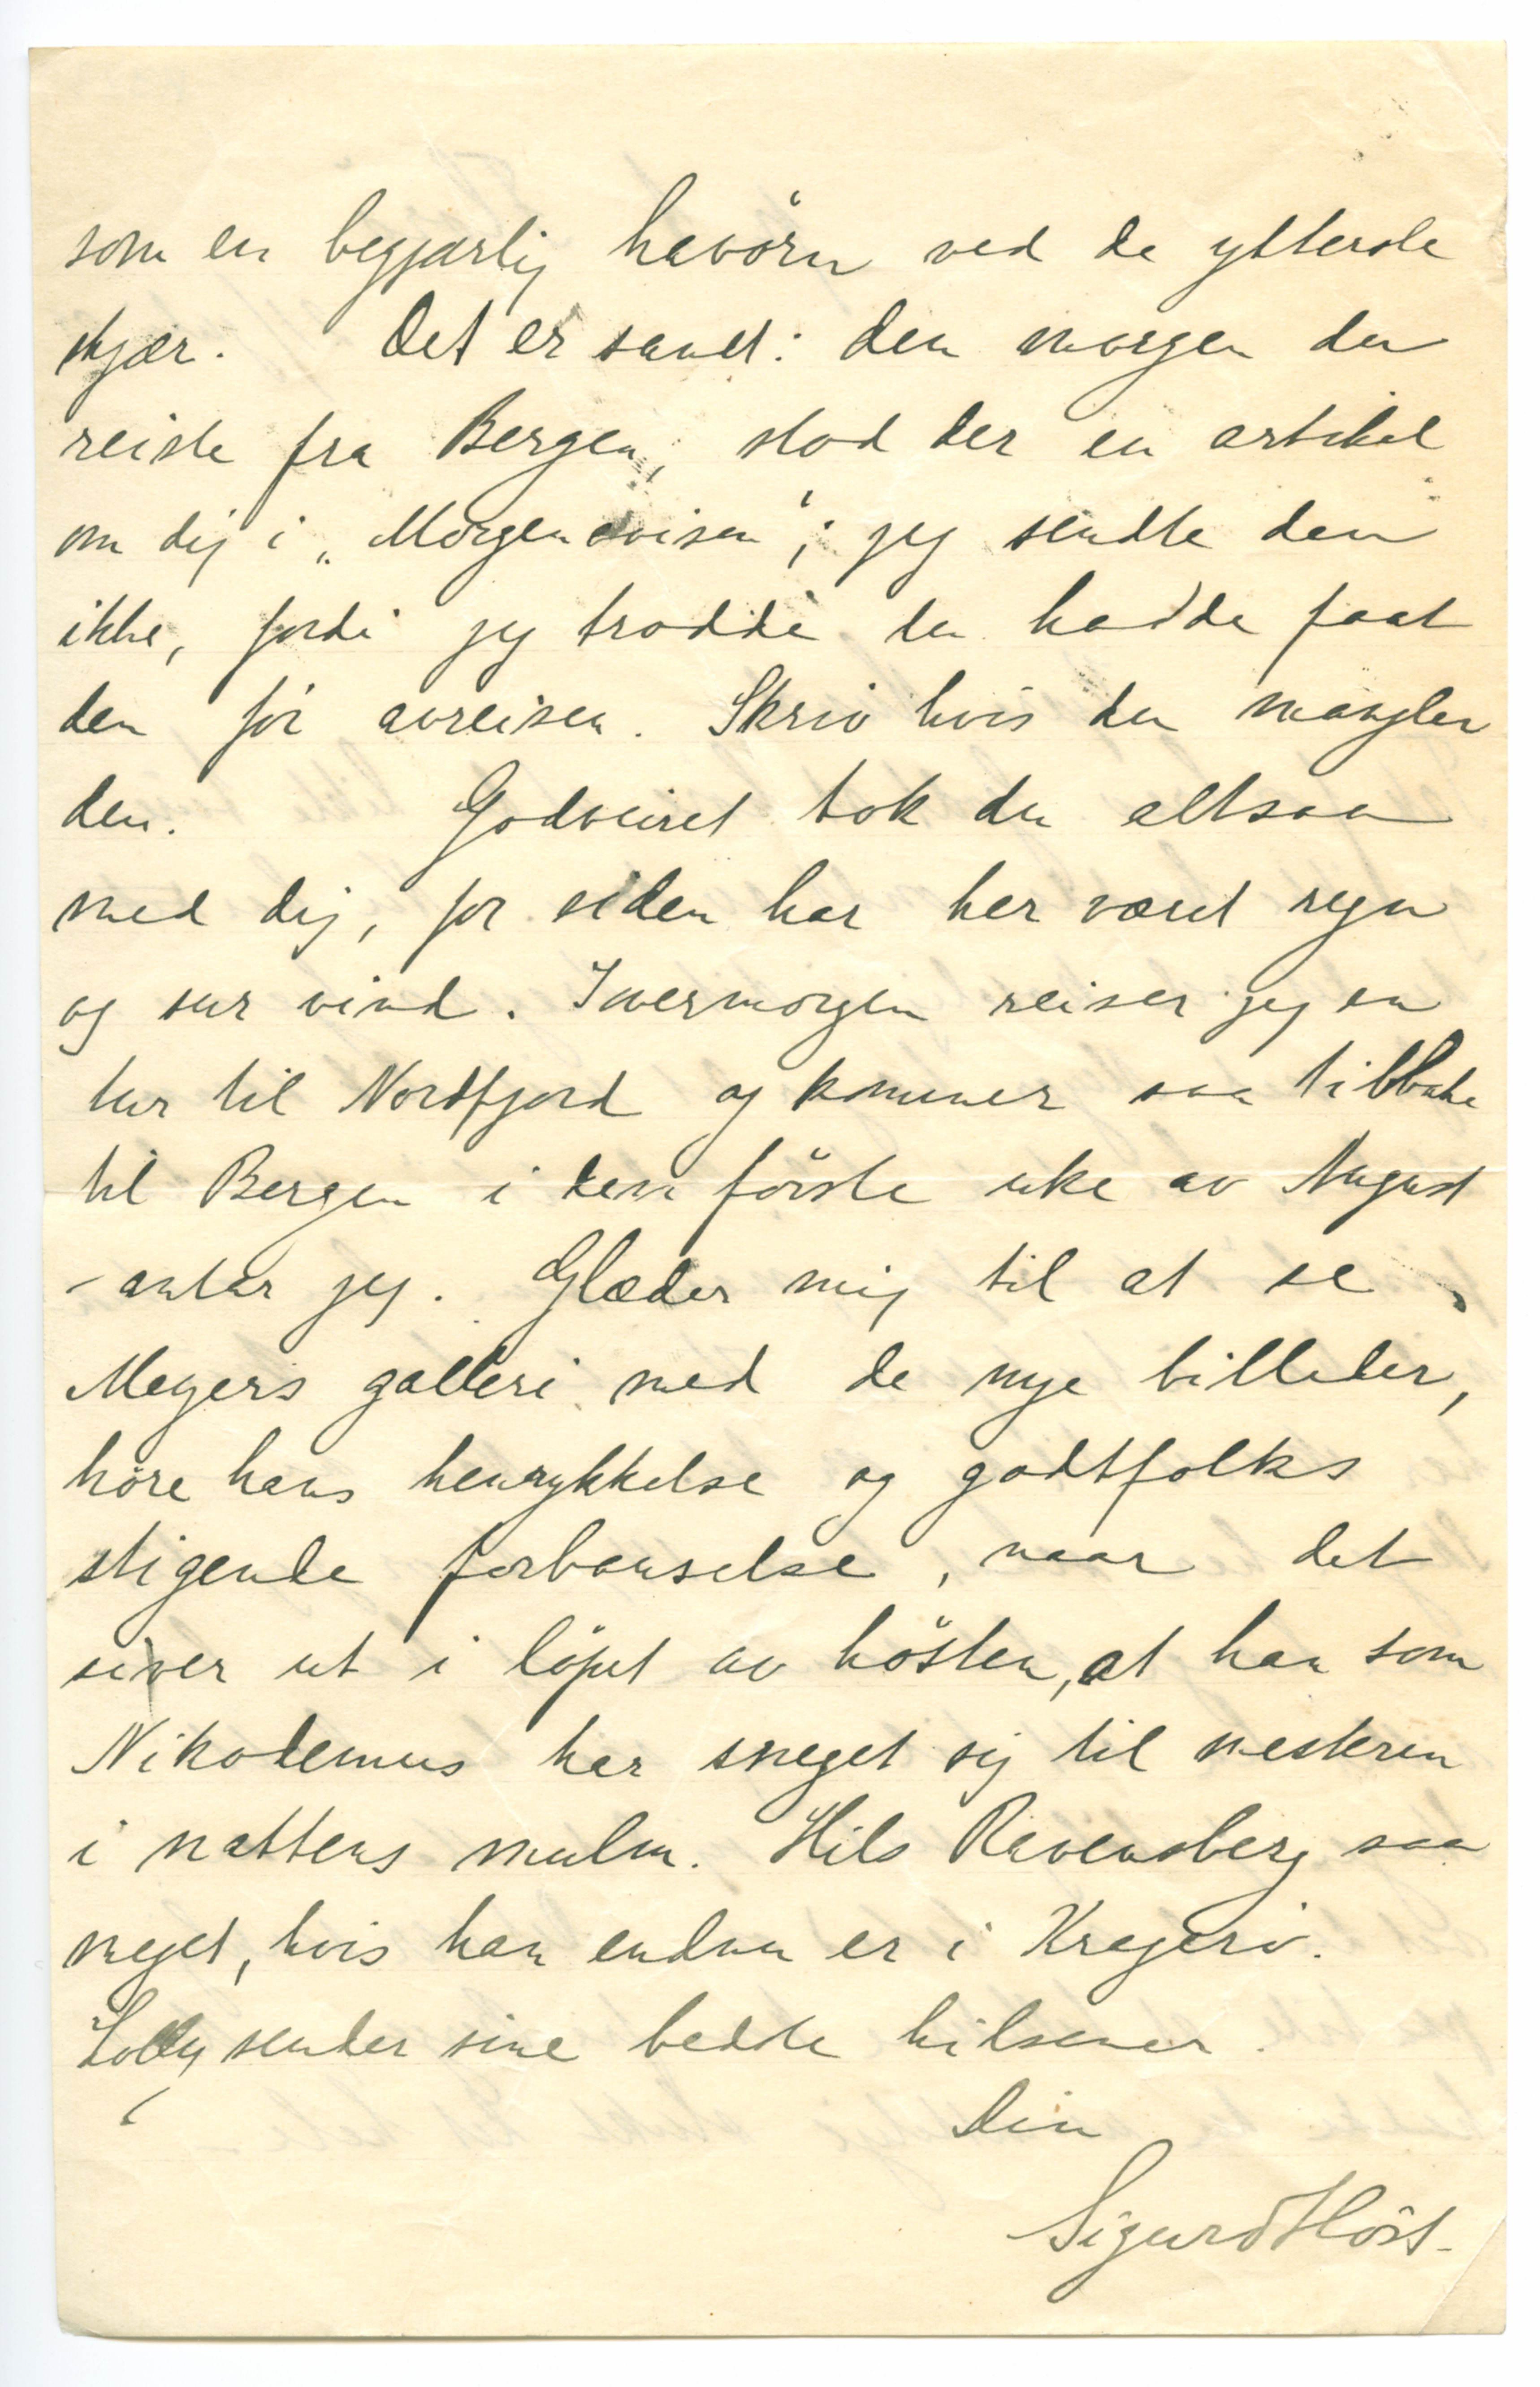 som en begjærlig havörn ved de ytterste
skjær. Det er sandt: den morgen du
reiste fra Bergen, stod der en artikel
om dig i „Morgenavisen“; jeg sendte den
ikke, fordi jeg trodde du hadde faat
den för avreisen. Skriv hvis du mangler
den. Godveiret tok du altsaa
med dig, for siden har her været regn
og sur vind. Iovermorgen reiser jeg en
tur til Nordfjord og kommer saa tilbake
til Bergen i den förste uke av August
– antar jeg. Glæder mig til at se
Meyers galleri med de nye billeder,
höre hans henrykkelse og godtfolks
stigende forbauselse, naar det
siver ut i löpet av hösten, at han som
Nikodemus har sneget sig til mesteren
i nattens mulm. Hils Ravensberg saa
meget, hvis han endnu er i Kragerö.
Lolly sender sine bedste hilsener.
Din
Sigurd Höst.